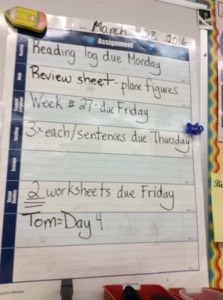 March 18, 2016
Assignment
Reading log due Monday
Review sheet - plane figures
Week # 27 - due Friday
3x each/sentences due Thursday
2 worksheets due Friday
Tom = Day 4